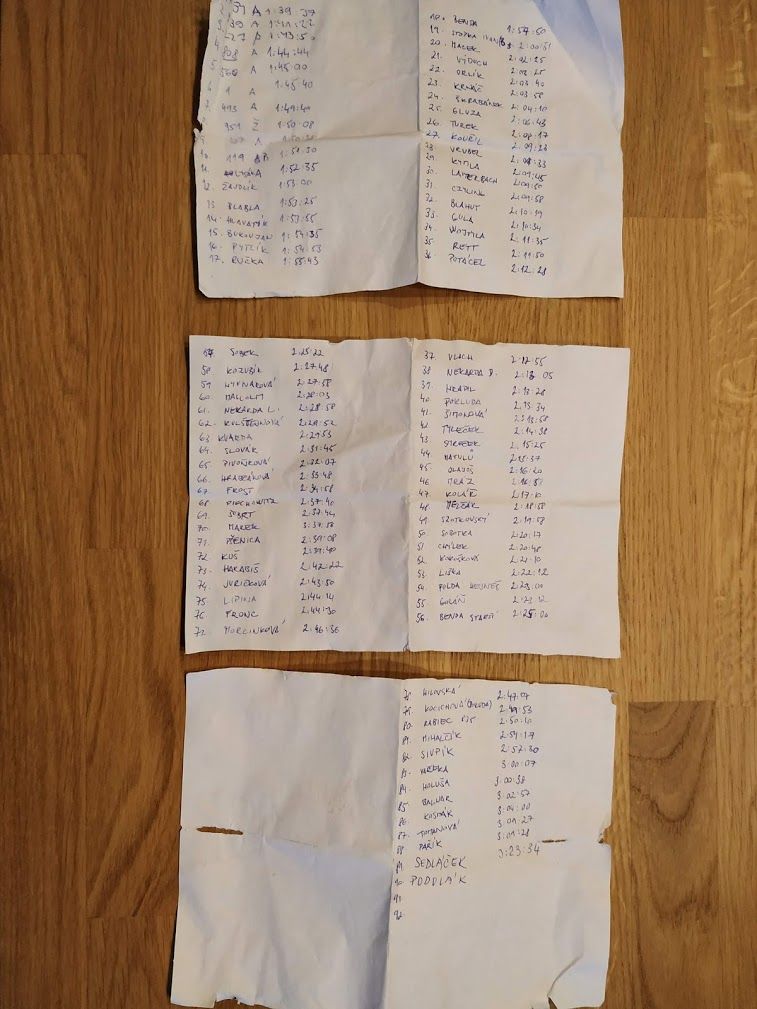 2. 31 A 1:39:37
3. 39 A 1:41:22
4. 427 A 1:43:50
808 A 1:44:44
5. 560 A 1:45:00
6. 1 A 1:45:40
7. 493 A 1:49:40
8. 951 Ž 1:50:08
A 1:50:25
10. 119 1:51:30
11. 1:52:35
12. ŽAVDLÍK 1:53:00
13. BLABLA 1:53:25
14. HLAVATÝK 1:53:55
15. BUROVJAN 1:54:35
16. PYTLÍK 1:54:53
17. RUČKA 1:55:43
18. BENDA 1:57:50
19. 2:00:51
20. MACEK 2:02:25
21. VÝDUCH 2:02:25
22. ORLÍK 2:03:40
23. KRNÁČ 2:03:58
24. ŠKRABÁNEK 2:04:10
25. GLUZA 2:06:43
26. TUREK 2:08:17
27. KOUŘIL 2:09:23
28. VRUBEL 2:08:33
29. KYTLA 2:09:45
30. LAUTERBACH 2:09:50
31. CZYLINK 2:09:58
32. BLAHUT 2:10:19
33. GULA 2:10:34
34. WOJTYLA 2:11:35
35. REYT 2:11:50
36. POTÁČEL 2:12:28
57. SOBEK 2:25:22
58. KOZUBÍK 2:27:48
59. HÝVNAROVÁ 2:27:58
60. MALCOLM 2:28:03
61. NEKARDA L. 2:28:58
62. KULŠTEJNOVÁ 2:29:52
63. KVARDA 2:29:53
64. SLOVÁK 2:31:45
65. PIVOŇKOVÁ 2:32:07
66. HRABÁNKOVÁ 2:33:48
67. FROST 2:34:58
68. PIECHOWICZ 2:37:40
69. ŠUBRT 2:37:44
70. MAREK 3:37:58
71. PŠENICA 2:39:08
72. KUŠ 2:39:40
73. HARABIŠ 2:42:22
74. JURIČKOVÁ 2:43:50
75. LIPINA 2:44:14
76. FRONC 2:44:30
77. MORCINKOVÁ 2:46:36
37. VLACH 2:12:55
38. NEKARDA R. 2:13:05
39. HRADIL 2:13:28
40. POKLUDA 2:13:34
41. ŠIMONOVÁ 2:13:58
42. TYLEČEK 2:14:38
43. STŘEDEK 2:15:25
44. MATULŮ 2:15:37
45. OLAJOŠ 2:16:20
46. MRÁZ 2:16:51
47. KOLÁŘ 2:17:10
48. MELČÁK 2:18:58
49. SZOTKOVSKÝ 2:19:58
50. SOBOTKA 2:20:17
51. CHÝLEK 2:20:48
52. KOKOŠKOVÁ 2:21:10
53. LIŠKA 2:22:12
54. POLDA 2:23:00
55. GOLÁŇ 2:23:12
56. BENDA STARŠÍ 2:25:00
78. HILOVSKÁ 2:47:07
79. KOCICHOVÁ 2:49:53
80. RABIEC 2:50:10
81. MIHALČÍK 2:54:19
82. SIVPÍK 2:57:30
83. VAŘEKA 3:00:07
84. HOLUŠA 3:00:38
85. BALVAR 3:02:57
86. KOSŇÁK 3:04:00
87. TOMANOVÁ 3:01:27
88. PAŘÍK 3:01:28
89. SEDLÁČEK 3:23:34
90. PODOLÁK
91.
92.